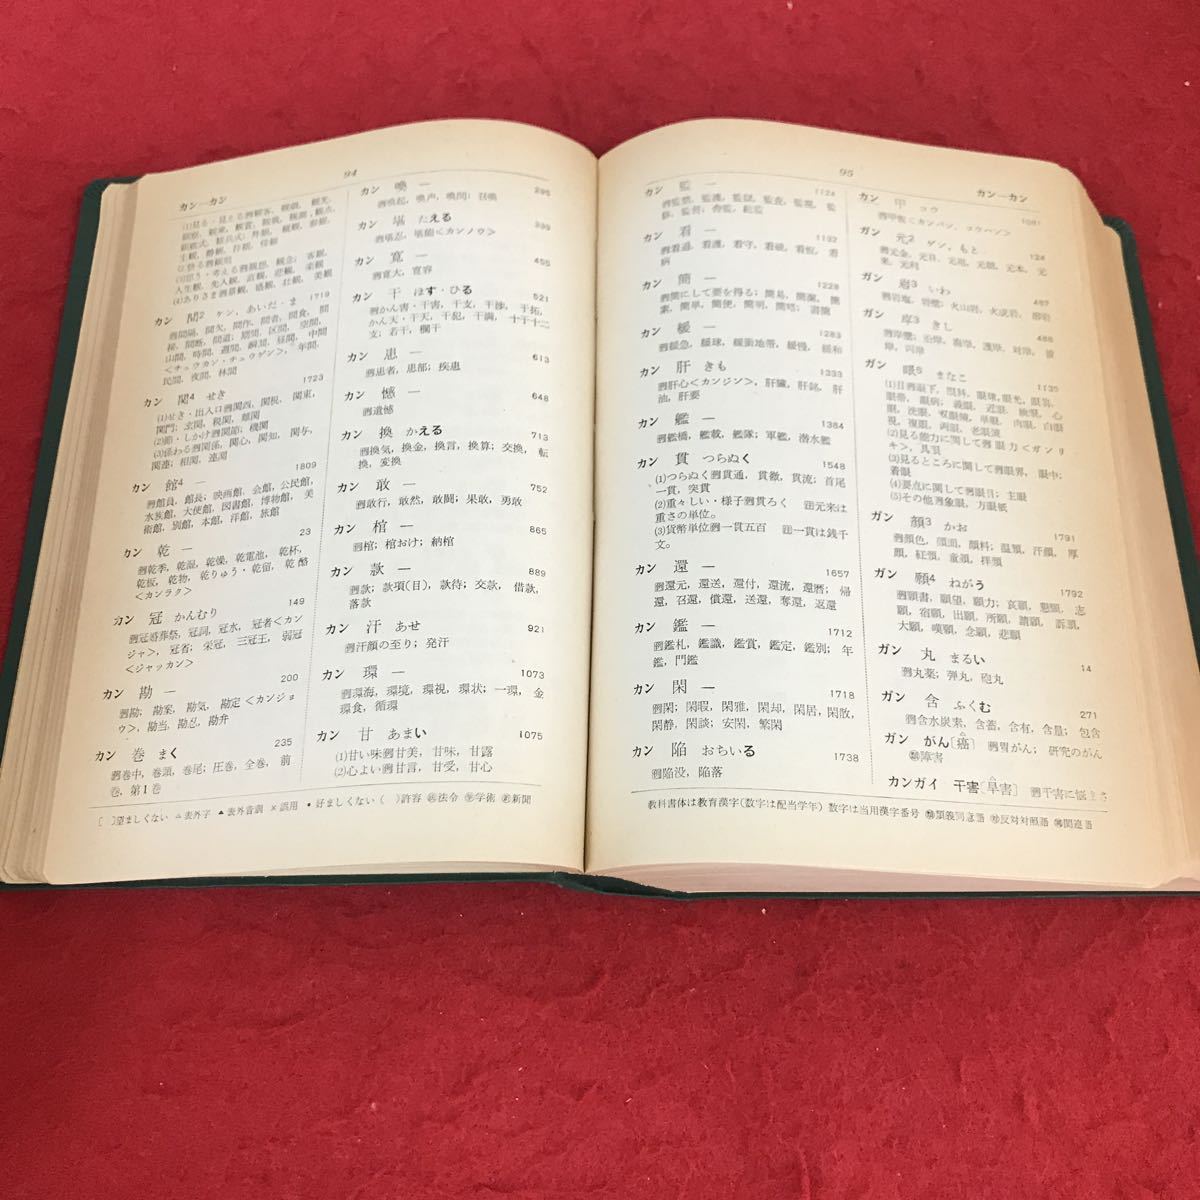 94
カン―カン
(1)見る・見える例観客, 観劇, 観光,
(2)悟る例観別
(3)思う・考える例観想, 観念; 客観,
人生観, 先入観, 直観, 悲観, 楽観
(4)ありさま例景観, 盛観, 壮観, 美観
カン 間2 ケン, あいだ・ま 1719
例間隔, 間欠, 間作, 間者, 間食, 間
山間, 時間, 週間, 瞬間, 昼間, 中間
<チュウカン・チュウゲン>, 年間,
民間, 夜間, 林間
カン 関4 せき 1723
(1)せき・出入口例関西, 関税, 関東,
関門; 玄関, 税関, 難関
(2)節・しかけ例関節; 機関
(3)係わる例関係, 関心, 関知, 関与,
関連; 相関, 連関
カン 館4 ― 1809
例館員, 館長; 映画館, 会館, 公民館,
水族館, 大使館, 図書館, 博物館, 美
術館, 別館, 本館, 洋館, 旅館
カン 乾 ― 23
例乾季, 乾湿, 乾燥, 乾電池, 乾杯,
乾板, 乾物, 乾りゅう・乾留, 乾酪
<カンラク>
カン 冠 かんむり 149
例冠婚葬祭, 冠詞, 冠水, 冠者<カン
ジャ>, 冠省; 栄冠, 三冠王, 弱冠
<ジャッカン>
カン 勘 ― 200
例勘; 勘案, 勘気, 勘定<カンジョ
ウ>, 勘当, 勘忍, 勘弁
カン 巻 まく 235
例巻中, 巻頭, 巻尾; 圧巻, 全巻, 前
巻, 第1巻
カン 喚 ― 295
例喚起, 喚声, 喚問; 召喚
カン 堪 たえる 339
例堪忍, 堪能<カンノウ>
カン 寛 ― 455
例寛大, 寛容
カン 干 ほす・ひる 521
例かん害・干害, 干支, 干渉, 干拓,
かん天・干天, 干犯, 干満, 十干十二
支; 若干, 欄干
カン 患 ― 613
例患者, 患部; 疾患
カン 憾 ― 648
例遺憾
カン 換 かえる 713
例換気, 換金, 換言, 換算; 交換, 転
換, 変換
カン 敢 ― 752
例敢行, 敢然, 敢闘; 果敢, 勇敢
カン 棺 ― 865
例棺; 棺おけ; 納棺
カン 款 ― 889
例款; 款項(目), 款待; 交款, 借款,
落款
カン 汗 あせ 921
例汗顔の至り; 発汗
カン 環 ― 1073
例環海, 環境, 環視, 環状; 一環, 金
環食, 循環
カン 甘 あまい 1075
(1)甘い味例甘美, 甘味, 甘露
(2)心よい例甘言, 甘受, 甘心
[ ]望ましくない △表外子 ▲表外音訓 ×誤用 •好ましくない ( )許容 法法令 学学術 新新聞
95
カン―カン
カン 監 ― 1124
例監禁, 監護, 監獄, 監査, 監視, 監
カン 看 ― 1132
例看過, 看護, 看守, 看破, 看板, 看
病
カン 簡 ― 1228
例簡にして要を得る; 簡易, 簡潔, 簡
素, 簡単, 簡便, 簡明, 簡略; 書簡
カン 緩 ― 1283
例緩急, 緩球, 緩衝地帯, 緩慢, 緩和
カン 肝 きも 1333
例肝心<カンジン>, 肝臓, 肝銘, 肝
油, 肝要
カン 艦 ― 1384
例艦橋, 艦載, 艦隊; 軍艦, 潜水艦
カン 貫 つらぬく 1548
(1)つらぬく例貫通, 貫徹, 貫流; 首尾
一貫, 突貫
(2)重々しい・様子例貫ろく 注元来は
重さの単位。
(3)貨幣単位例一貫五百 注一貫は銭千
文。
カン 還 ― 1657
例還元, 還送, 還付, 還流, 還暦; 帰
還, 召還, 償還, 送還, 奪還, 返還
カン 鑑 ― 1712
例鑑札, 鑑識, 鑑賞, 鑑定, 鑑別; 年
鑑, 門鑑
カン 閑 ― 1718
例閑; 閑暇, 閑雅, 閑却, 閑居, 閑散,
閑静, 閑談; 安閑, 繁閑
カン 陥 おちいる 1738
例陥没, 陥落
カン 甲 コウ 1081
例甲板<カンパン, コウハン>
ガン 元2 ゲン, もと 124
例元金, 元日, 元祖, 元朝, 元本, 元
来, 元利
ガン 岩3 いわ 487
例岩塩, 岩壁; 火山岩, 火成岩, 溶岩
ガン 岸3 きし 488
例岸壁; 沿岸, 海岸, 護岸, 対岸,
岸, 両岸
ガン 眼5 まなこ 1135
(2)見る能力に関して例眼力<ガンリ
キ>, 具眼
(3)見るところに関して例眼界, 眼中;
着眼
(4)要点に関して例眼目; 主眼
(5)その他例象眼, 方眼紙
ガン 顔3 かお 1791
例顔色, 顔面, 顔料; 温顔, 汗顔, 厚
顔, 紅顔, 童顔, 拝顔
ガン 願4 ねがう 1792
例願書, 願望, 願力; 哀願, 懇願, 志
願, 宿願, 出願, 所願, 請願, 訴願,
大願, 嘆願, 念願, 悲願
ガン 丸 まるい 14
例丸薬; 弾丸, 砲丸
ガン 含 ふくむ 271
例含水炭素, 含蓄, 含有, 含量; 包含
ガン がん[癌] 例胃がん; 研究のがん
類障害
カンガイ 干害[旱害] 例干害に悩まさ
教科書体は教育漢字(数字は配当学年) 数字は当用漢字番号 類類義同意語 対反対対照語 関関連語